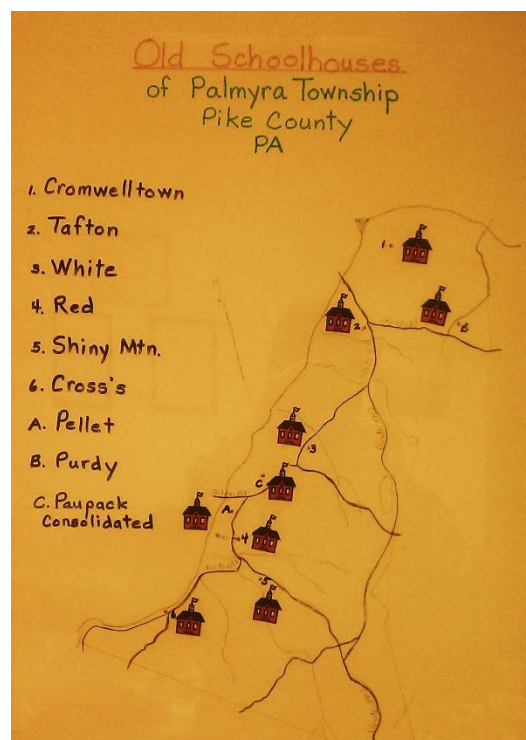 Old Schoolhouses
of Palmyra Township
Pike County
PA
1. Cromwelltown
2. Tafton
3. White
4. Red
5. Shiny Mtn.
6. Cross's
A. Pellet
B. Purdy
C. Paupack
Consolidated
1.
2.
B
3
C
A.
4
5
6